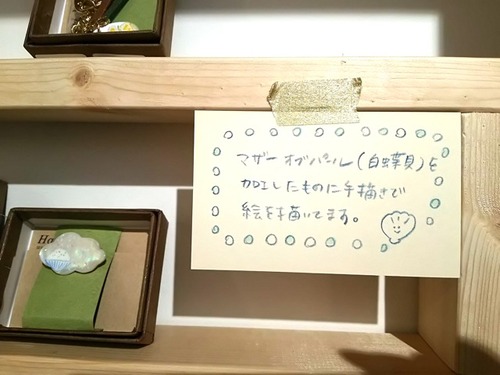 マザーオブパール(白蝶貝)を
加工したものに手描きで
絵を描いてます。
Ho